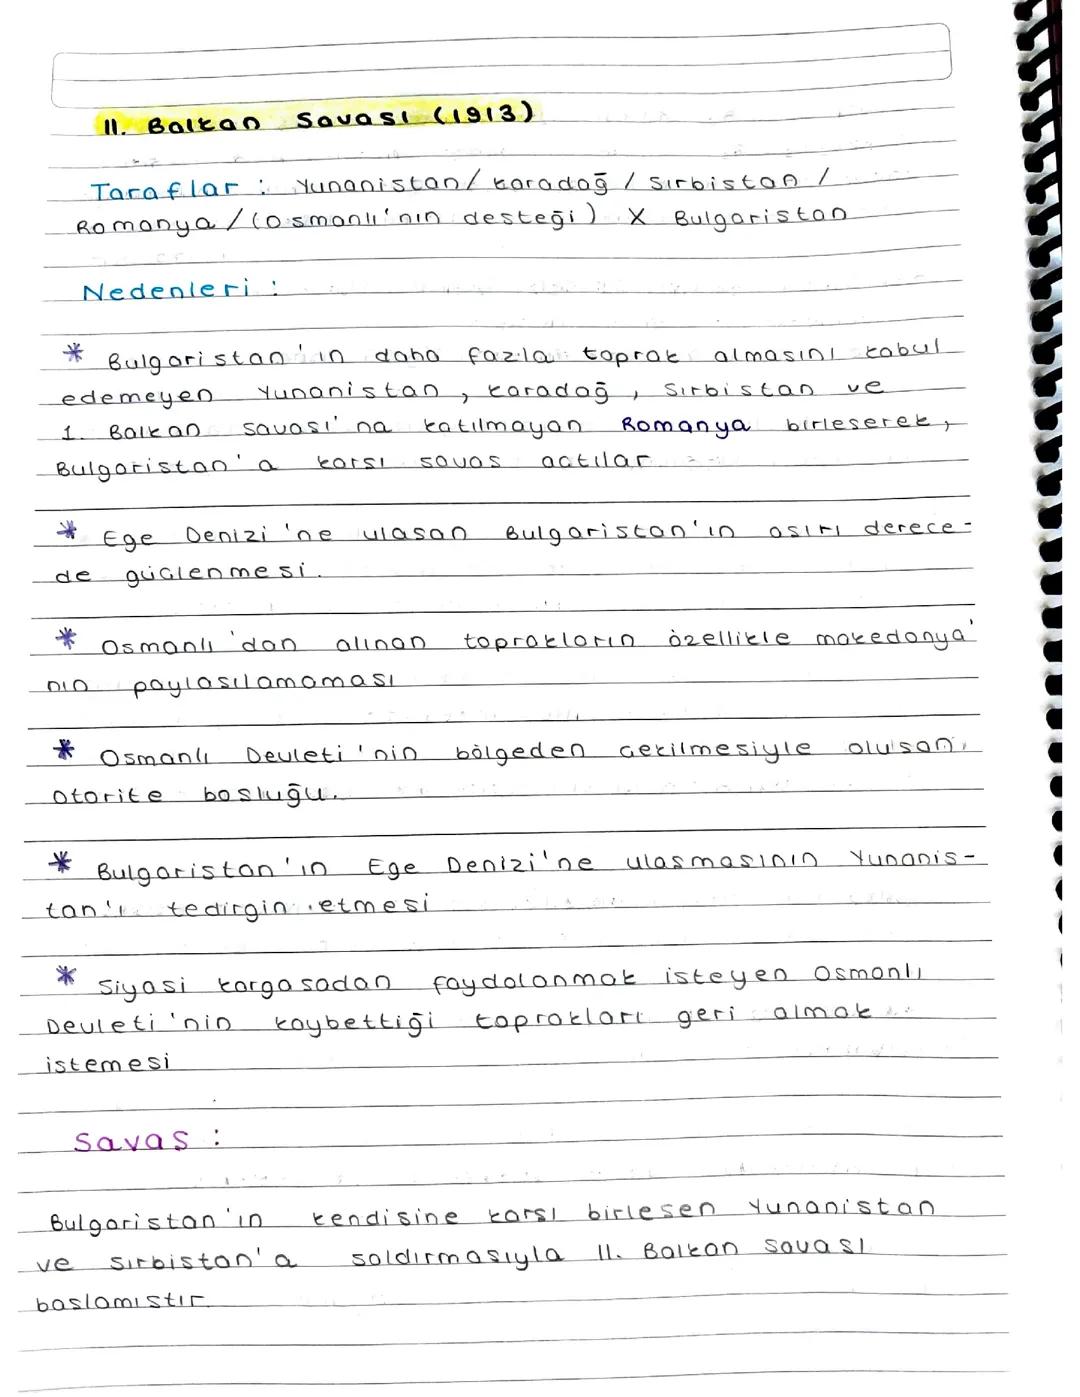 II. Balkan Savası (1913)
Taraflar : Yunanistan/ karadağ / Sırbistan /
Romanya / (Osmanlı'nın desteği) X Bulgaristan
Nedenleri :
* Bulgaristan'ın daha fazla toprak almasını kabul
edemeyen Yunanistan, karadağ, Sırbistan ve
1. Balkan savası'na katılmayan Romanya birleserek,
Bulgaristan'a karsı savas actılar
* Ege Denizi'ne ulasan Bulgaristan'ın asırı derece-
de güclenmesi.
* Osmanlı'dan alınan toprakların özellikle makedonya'
nın paylasılamaması
* Osmanlı Devleti'nin bölgeden cekilmesiyle olusan
otorite bosluğu.
* Bulgaristan'ın Ege Denizi'ne ulasmasının Yunanis-
tan'ı tedirgin etmesi
* Siyasi kargasadan faydalanmak isteyen Osmanlı
Devleti'nin kaybettiği toprakları geri almak
istemesi
Savas :
Bulgaristan'ın kendisine karsı birlesen Yunanistan
ve Sırbistan'a saldırmasıyla II. Balkan Savası
baslamıstır.